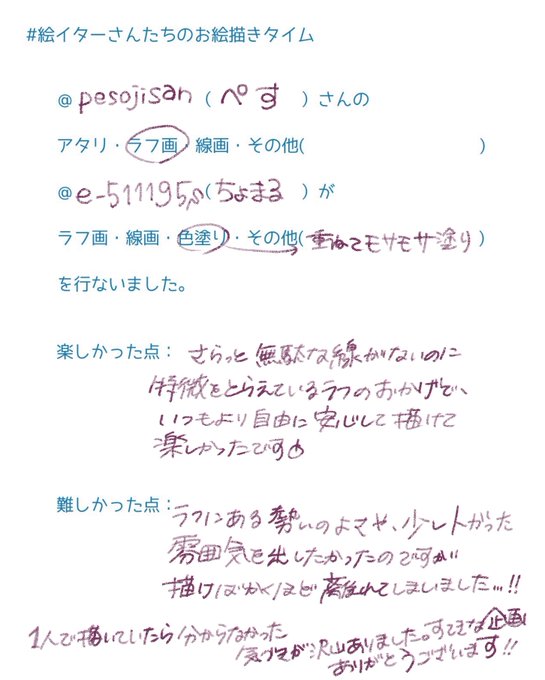 #絵イターさんたちのお絵描きタイム
@pesojisan(ぺす)さんの
アタリ・ラフ画・線画・その他( )
@e-511195(ちょまる)が
ラフ画・線画・色塗り・その他(重ねてモサモサ塗り)
を行ないました。
楽しかった点:さらっと無駄な線がないのに
特徴をとらえているラフのおかげで、
いつもより自由に安心して描けて
楽しかったです
難しかった点:ラフにある勢いのよさや、少し
雰囲気を出したかったのですが
描けばかくほど離れてしまいました…!!
1人で描いていたら分からなかった
気づきが沢山ありました。すてきな企画
ありがとうございます!!